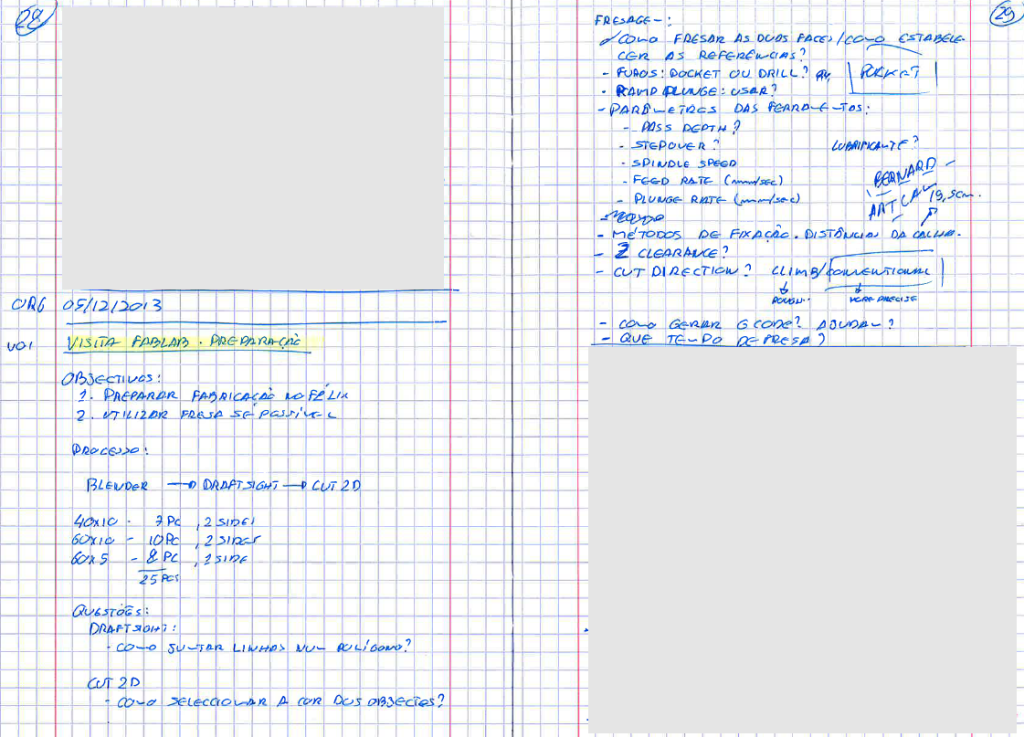 28
ORG 05/12/2013
V01 VISITA FABLAB. PREPARAÇÃO
OBJECTIVOS:
1. PREPARAR FABRICAÇÃO NO FÉLIX
2. UTILIZAR FRESA SE POSSÍVEL
PROCESSO:
BLENDER → DRAFTSIGHT → CUT 2D
40x10 - 7 PC, 2 SIDES
60x10 - 10 PC, 2 SIDES
60x5 - 8 PC, 1 SIDE
25 PCS
QUESTÕES:
DRAFTSIGHT:
- COMO JUNTAR LINHAS NUM POLÍGONO?
CUT 2D
- COMO SELECCIONAR A COR DOS OBJECTOS?
29
FRESAGEM:
COMO FRESAR AS DUAS FACES / COMO ESTABELE
CER AS REFERÊNCIAS?
- FUROS: POCKET OU DRILL? POCKET
- RAMP PLUNGE: USAR?
- PARÂMETROS DAS FERRAMENTAS:
- PASS DEPTH?
- STEPOVER? LUBRIFICANTE?
- SPINDLE SPEED
- FEED RATE (mm/sec) BERNARD
- PLUNGE RATE (mm/sec) 19,5cm.
- MÉTODOS DE FIXAÇÃO. DISTÂNCIA DA CALHA.
- Z CLEARANCE?
- CUT DIRECTION? CLIMB/CONVENTIONAL
ROUGH.. MORE PRECISE
- COMO GERAR GCODE? AJUDAM?
- QUE TEMPO DE FRESA?